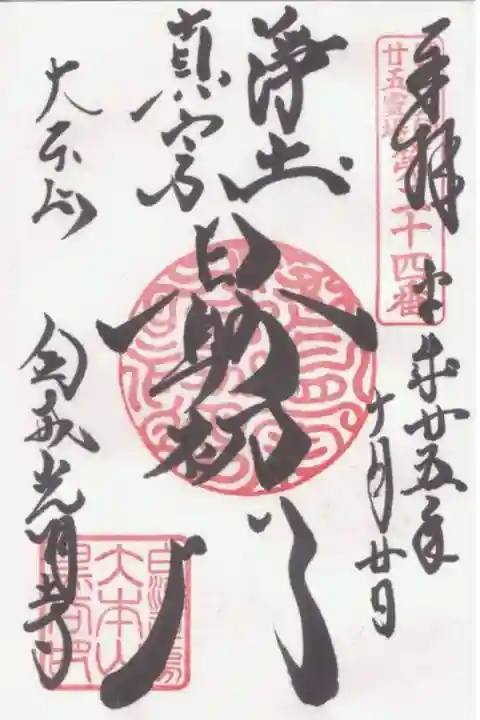 奉拝
平成廿五年
十月廿日
廿五霊場
第二十四番
浄土
眞宗
最初門
大本山
金戒光明寺
大本山